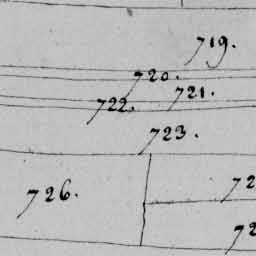 719.
720.
721.
722.
723.
726.